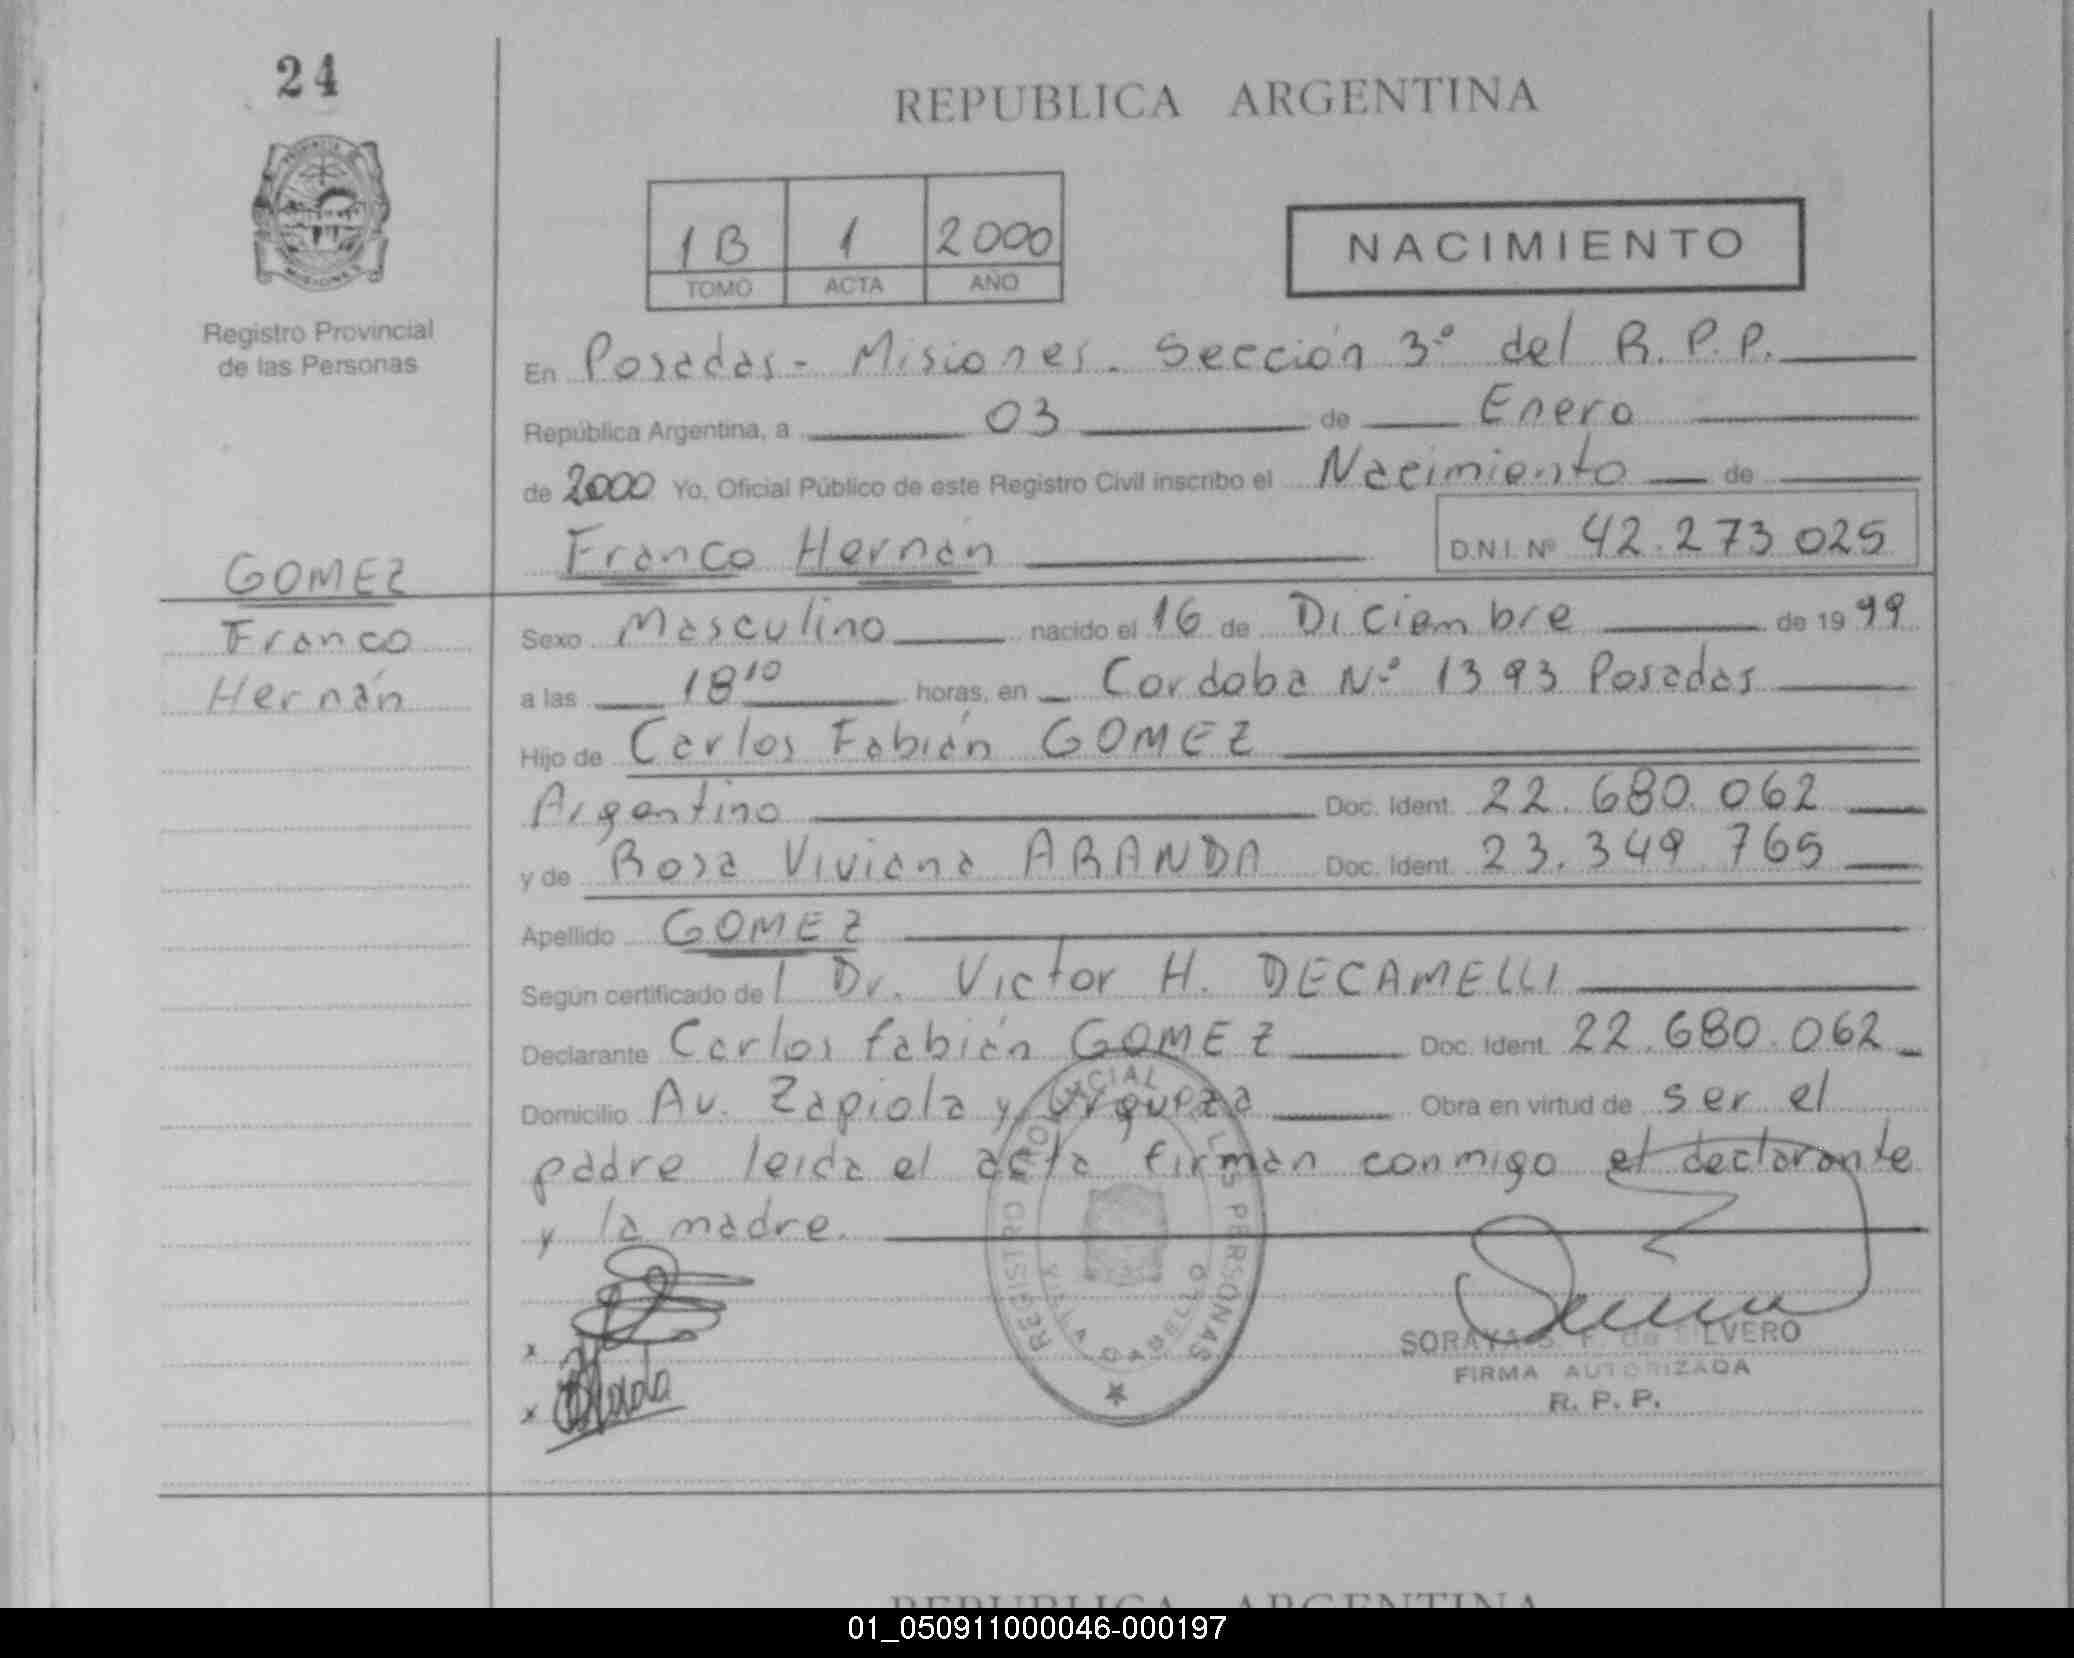 24
REPUBLICA ARGENTINA
1B 1 2000
TOMO ACTA AÑO
NACIMIENTO
Registro Provincial
de las Personas
En Posadas - Misiones. Sección 3º del R. P. P.
República Argentina, a 03 de Enero
de 2000 Yo, Oficial Público de este Registro Civil inscribo el Nacimiento de
Franco Hernán D.N.I. Nº 42.273 025
GOMEZ
Franco
Hernán
Sexo Masculino nacido el 16 de Diciembre de 19 99
a las 18 10 horas, en Cordoba Nº 1393 Posadas
Hijo de Carlos Fabián GOMEZ
Argentino Doc. Ident. 22.680.062
y de Rosa Viviana ARANDA Doc. Ident. 23.349.765
Apellido GOMEZ
Según certificado del Dr. Victor H. DECAMELLI
Declarante Carlos fabián GOMEZ Doc. Ident. 22.680.062
Domicilio Av. Zapiola y Urquiza Obra en virtud de ser el
padre leida el acta firman conmigo el declarante
y la madre.
REGISTRO PROVINCIAL DE LAS PERSONAS
VILLA CABELLO
x
x
SORAYA S. F. de SILVERO
FIRMA AUTORIZADA
R. P. P.
REPUBLICA ARGENTINA
01_050911000046-000197